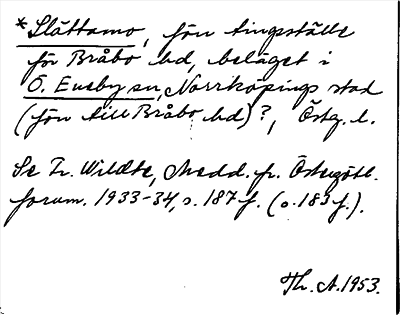 *Slåttamo, förr tingsställe
för Bråbo hd, beläget i
Ö. Eneby sn, Norrköpings stad
(förr till Bråbo hd)?, Östg. l.
Se Fr. Wildte, Medd. fr. Östergötl.
fornm. 1933-34, s. 187 f. (o. 183 f.).
Th. A. 1953.